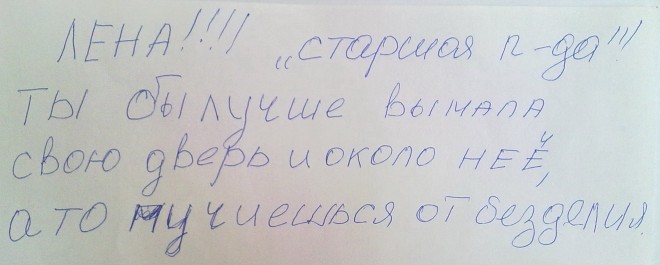 ЛЕНА!!!! „старшая п-да"!!
ТЫ бы лучше вымала
свою дверь и около НЕЁ,
а то мучиешься от безделия